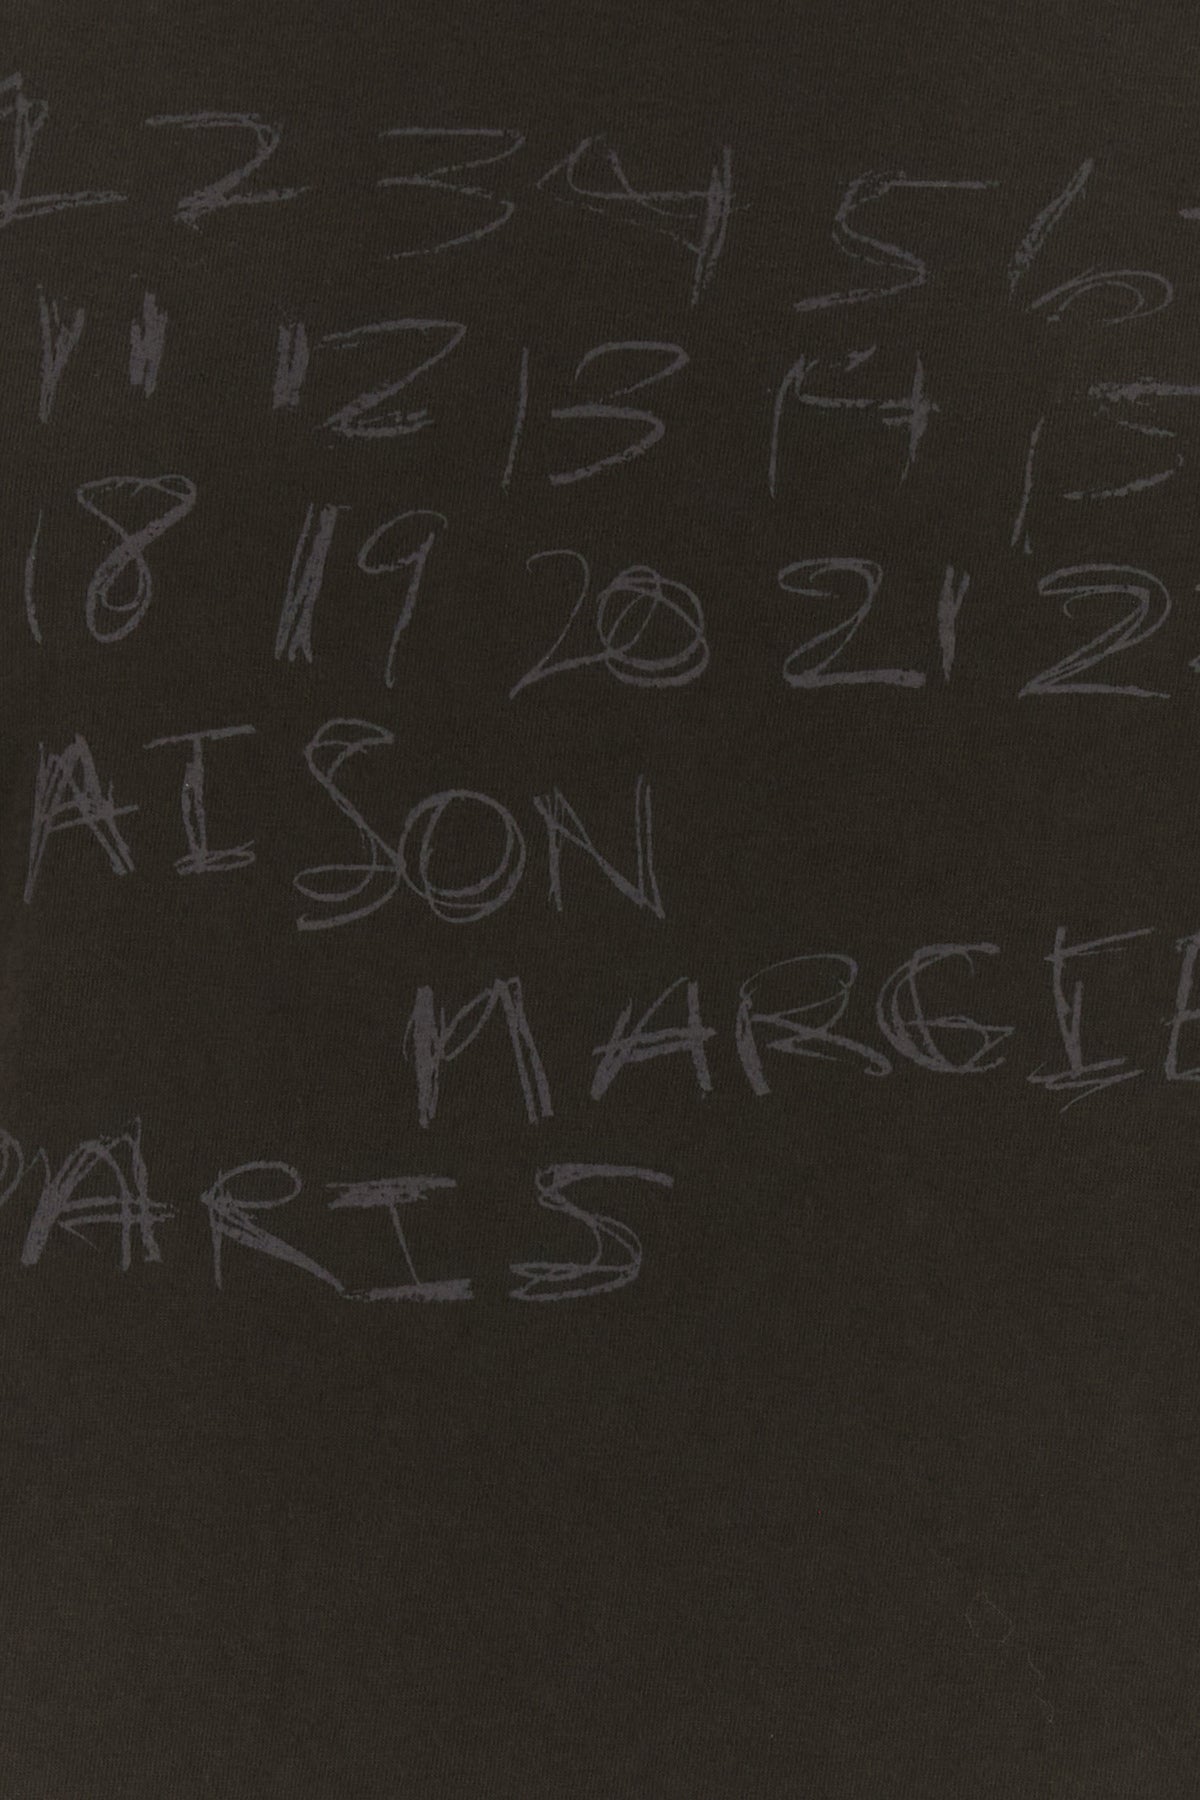 1 2 3 4 5 6
11 12 13 14 15
18 19 20 21 2
AISON
MARGIE
PARIS